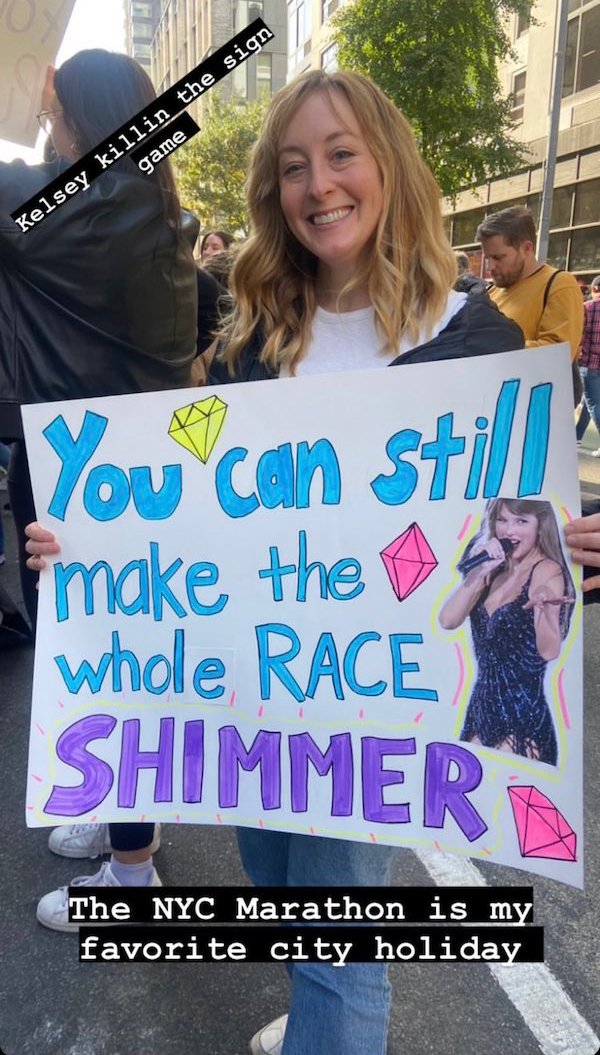 Kelsey killin the sign
game
You can still
make the
whole RACE
SHIMMER
The NYC Marathon is my
favorite city holiday